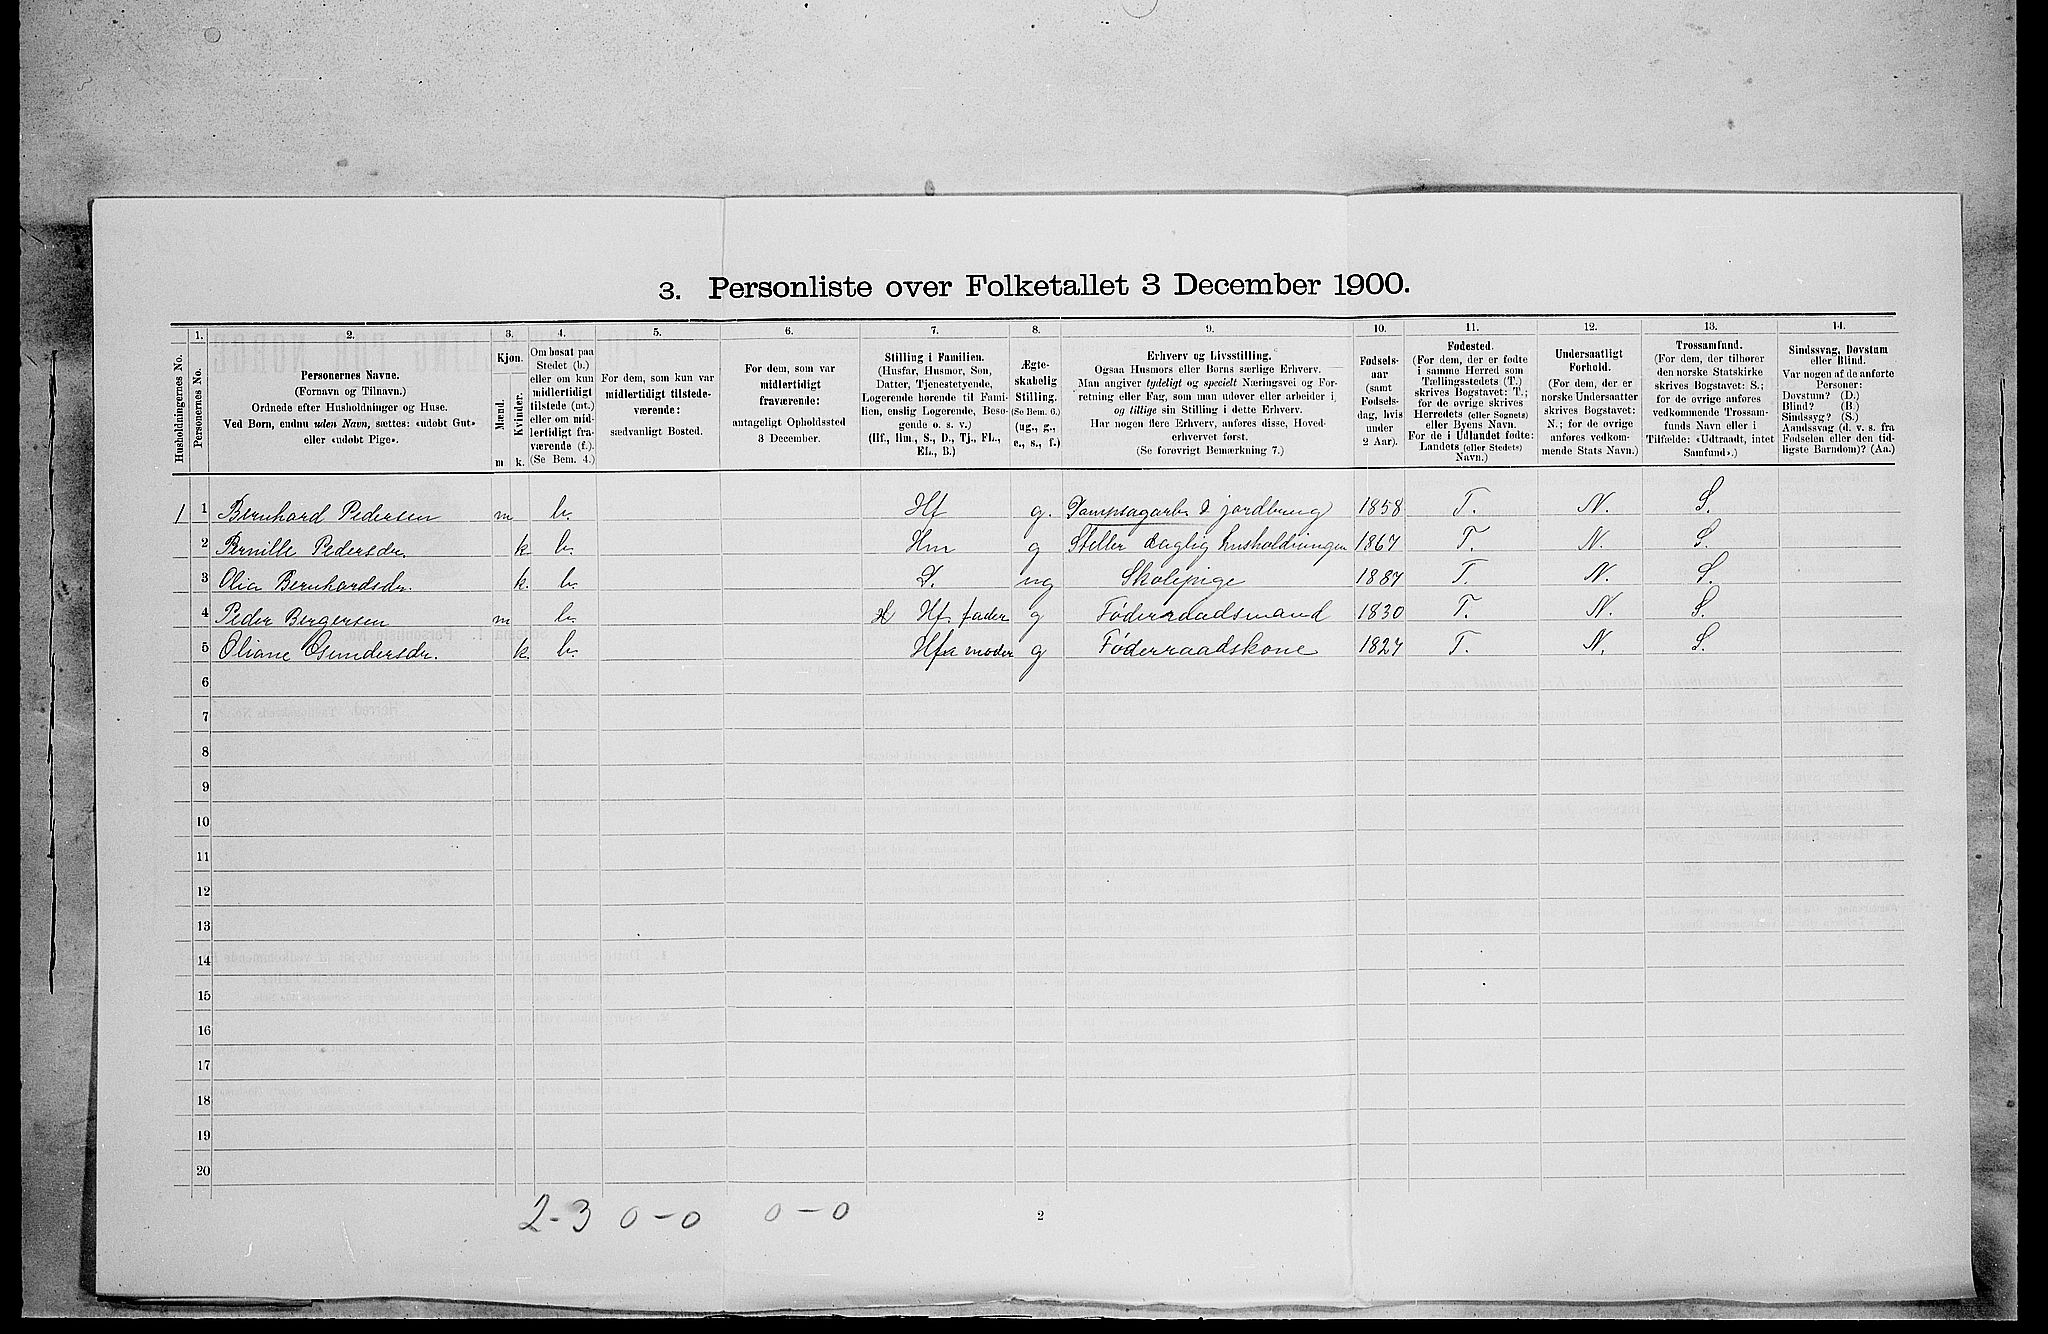 3. Personliste over Folketallet 3 December 1900.
Husholdningernes No.
1.
Personernes No.
2.
Personernes Navne.
(Fornavn og Tilnavn.)
Ordnede efter Husholdninger og Huse.
Ved Børn, endnu uden Navn, sættes: «udøbt Gut»
eller «udøbt Pige».
3.
Kjøn.
Mænd.
Kvinder.
m
k.
4.
Om bosat paa
Stedet (b.)
eller om kun
midlertidigt
tilstede (mt.)
eller om mid-
lertidigt fra-
værende (f.).
(Se Bem. 4.)
5.
For dem, som kun var
midlertidigt tilstede-
værende:
sædvanligt Bosted.
6.
For dem, som var
midlertidigt
fraværende:
antageligt Opholdssted
3 December.
7.
Stilling i Familien.
(Husfar, Husmor, Søn,
Datter, Tjenestetyende,
Logerende hørende til Fami-
lien, enslig Logerende, Besø-
gende o. s. v.)
(Hf., Hm., S., D., Tj., FL.,
EL., B.)
8.
Ægte-
skabelig
Stilling.
(Se Bem. 6.)
(ug., g.,
e., s., f.)
9.
Erhverv og Livsstilling.
Ogsaa Husmors eller Børns særlige Erhverv.
Man angiver tydeligt og specielt Næringsvei og For-
retning eller Fag, som man udøver eller arbeider i,
og tillige sin Stilling i dette Erhverv.
Har nogen flere Erhverv, anføres disse, Hoved-
erhvervet først.
(Se forøvrigt Bemærkning 7.)
10.
Fødsels-
aar
(samt
Fødsels-
dag, hvis
under
2 Aar).
11.
Fødested.
(For dem, der er fødte
i samme Herred som
Tællingsstedets (T.)
skrives Bogstavet: T.;
for de øvrige skrives
Herredets (eller Sognets)
eller Byens Navn.
For de i Udlandet fødte:
Landets (eller Stedets)
Navn.)
12.
Undersaatligt
Forhold.
(For dem, der er
norske Undersaatter
skrives Bogstavet:
N.; for de øvrige
anføres vedkom-
mende Stats Navn.)
13.
Trossamfund.
(For dem, der tilhører
den norske Statskirke
skrives Bogstavet: S.;
for de øvrige anføres
vedkommende Trossam-
funds Navn eller i
Tilfælde: «Udtraadt, intet
Samfund».)
14.
Sindssvag, Døvstum
eller Blind.
Var nogen af de anførte
Personer:
Døvstum? (D.)
Blind? (B.)
Sindssyg? (S.)
Aandssvag (d. v. s. fra
Fødselen eller den tid-
ligste Barndom)? (Aa.)
1 1 Bernhard Pedersen m b. Hf g. Dampsagarb. & jordbrug 1858 T. N. S.
2 Pernille Pedersdr. k b. Hm g Steller daglig husholdningen 1867 T. N. S.
3 Olia Bernhardsdr. k. b. D. ug Skolepige 1887 T. N. S.
4 Peder Bergersen m b. Hf fader g Føderaadsmand 1830 T. N. S.
5 Oliane Gundersdr. k. b. Hfs moder g Føderraadskone 1827 T. N. S.
6
7
8
9
10
11
12
13
14
15
16
17
18
19
20
2-3 0-0 0-0
2